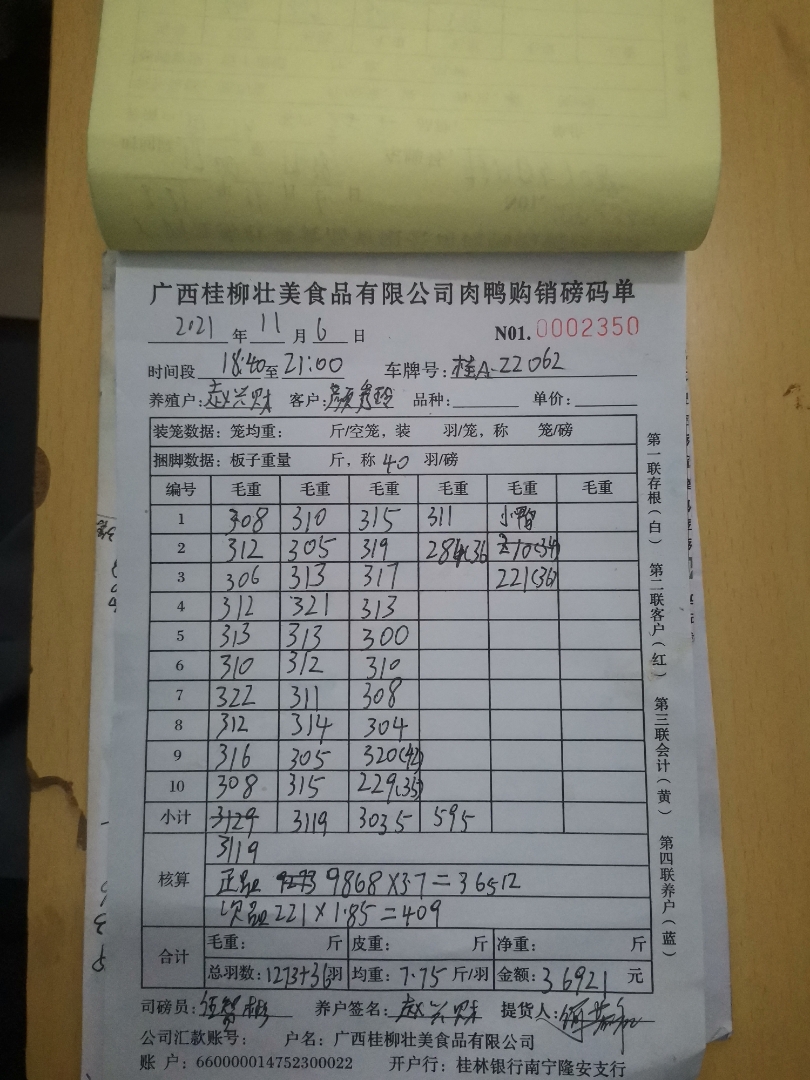 广西桂柳壮美食品有限公司肉鸭购销磅码单
2021 年 11 月 6 日 N01. 0002350
时间段 18:40 至 21:00 车牌号: 桂A-22062
养殖户: 赵兴财 客户: 颜秀玲 品种: 单价:
装笼数据: 笼均重: 斤/空笼, 装 羽/笼, 称 笼/磅
捆脚数据: 板子重量 斤, 称 40 羽/磅
编号 毛重 毛重 毛重 毛重 毛重 毛重
1 308 310 315 311 小鸭
2 312 305 319 284(36 210(34)
3 306 313 317 221(36)
4 312 321 313
5 313 313 300
6 310 312 310
7 322 311 308
8 312 314 304
9 316 305 320(42)
10 308 315 229(35)
小计 3129 3119 3035 595
3119
核算 正品 9273 9868×3.7=36512
次品 221×1.85=409
合计 毛重: 斤 皮重: 斤 净重: 斤
总羽数: 1273+36羽 均重: 7.75 斤/羽 金额: 36921 元
司磅员: 养户签名: 赵兴财 提货人:
公司汇款账号: 户名: 广西桂柳壮美食品有限公司
账 户: 660000014752300022 开户行: 桂林银行南宁隆安支行
第一联存根(白) 第二联客户(红) 第三联会计(黄) 第四联养户(蓝)